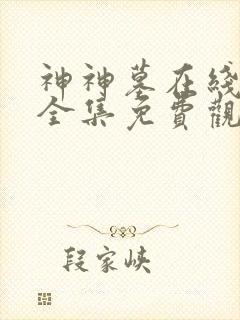 神神墓在綫
全集免費觀
段家峽